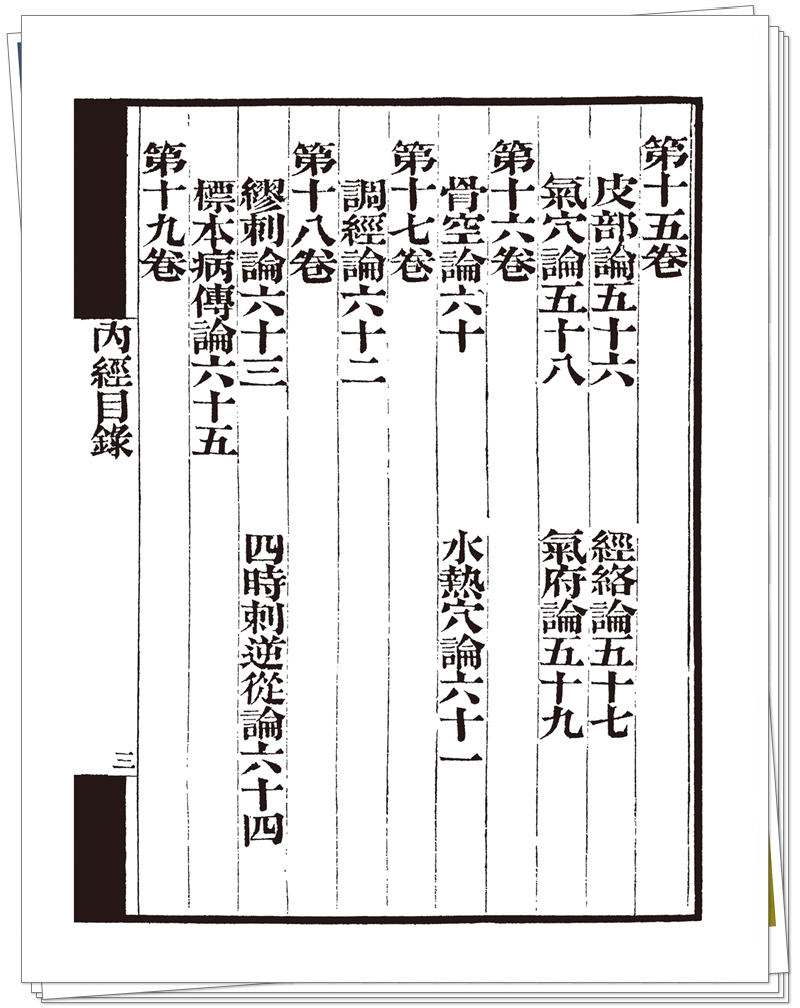 第十五卷
皮部論五十六 經絡論五十七
氣穴論五十八 氣府論五十九
第十六卷
骨空論六十 水熱穴論六十一
第十七卷
調經論六十二
第十八卷
繆刺論六十三 四時刺逆從論六十四
標本病傳論六十五
第十九卷
內經目錄
三